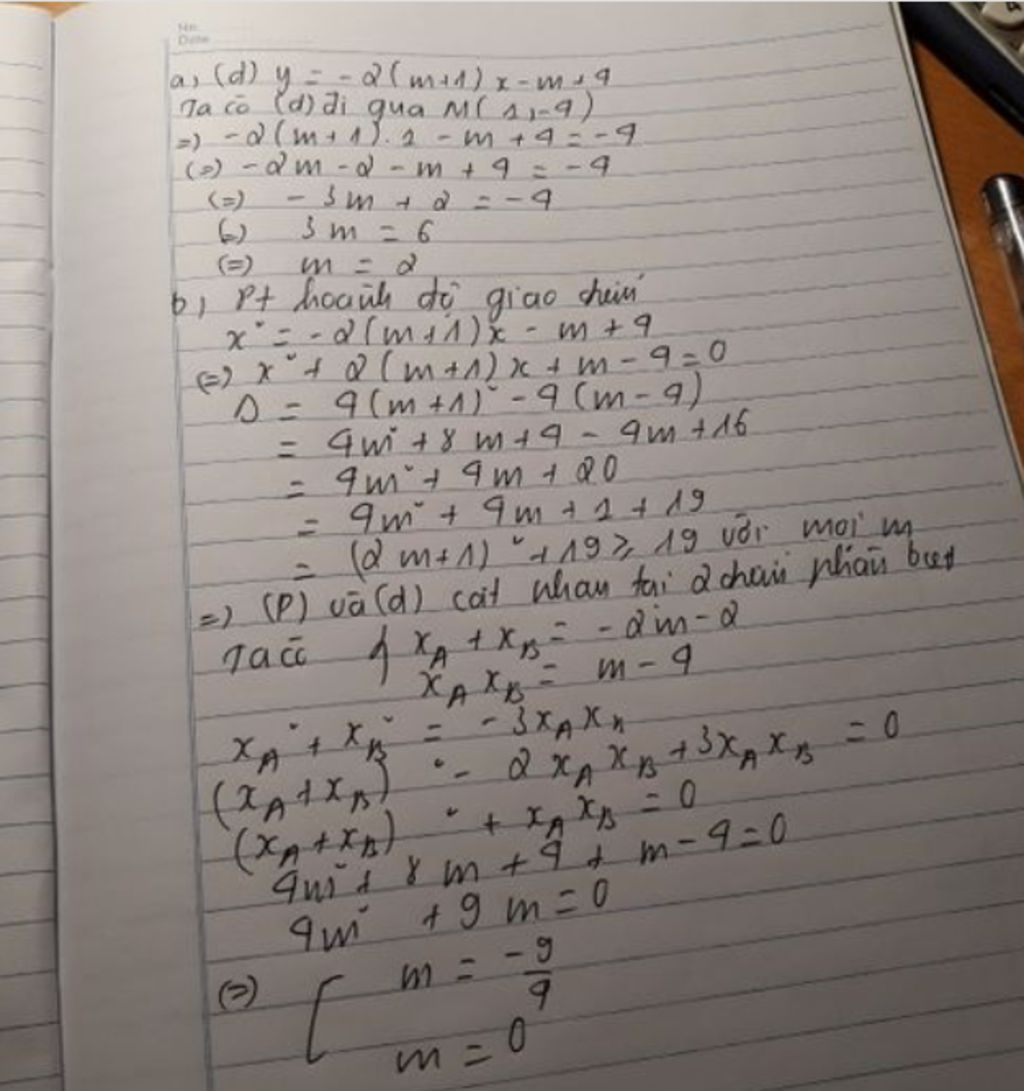 No.
Date
a, (d) y = -2(m+1)x - m + 4
Ta có (d) đi qua M(1,-4)
=) -2(m+1).1 - m + 4 = -4
(=) -2m - 2 - m + 4 = -4
(=) -3m + 2 = -4
(=) 3m = 6
(=) m = 2
b, Pt hoành độ giao điểm
x² = -2(m+1)x - m + 4
(=) x² + 2(m+1)x + m - 4 = 0
Δ = 4(m+1)² - 4(m-4)
= 4m² + 8m + 4 - 4m + 16
= 4m² + 4m + 20
= 4m² + 4m + 1 + 19
= (2m+1)² + 19 ≥ 19 với mọi m
=) (P) và (d) cắt nhau tại 2 điểm phân biệt
Ta có { x_A + x_B = -2m - 2
x_A x_B = m - 4
x_A² + x_B² = -3x_A x_B
(x_A + x_B)² - 2x_A x_B + 3x_A x_B = 0
(x_A + x_B)² + x_A x_B = 0
4m² + 8m + 4 + m - 4 = 0
4m² + 9m = 0
(=) [ m = -9/4
m = 0